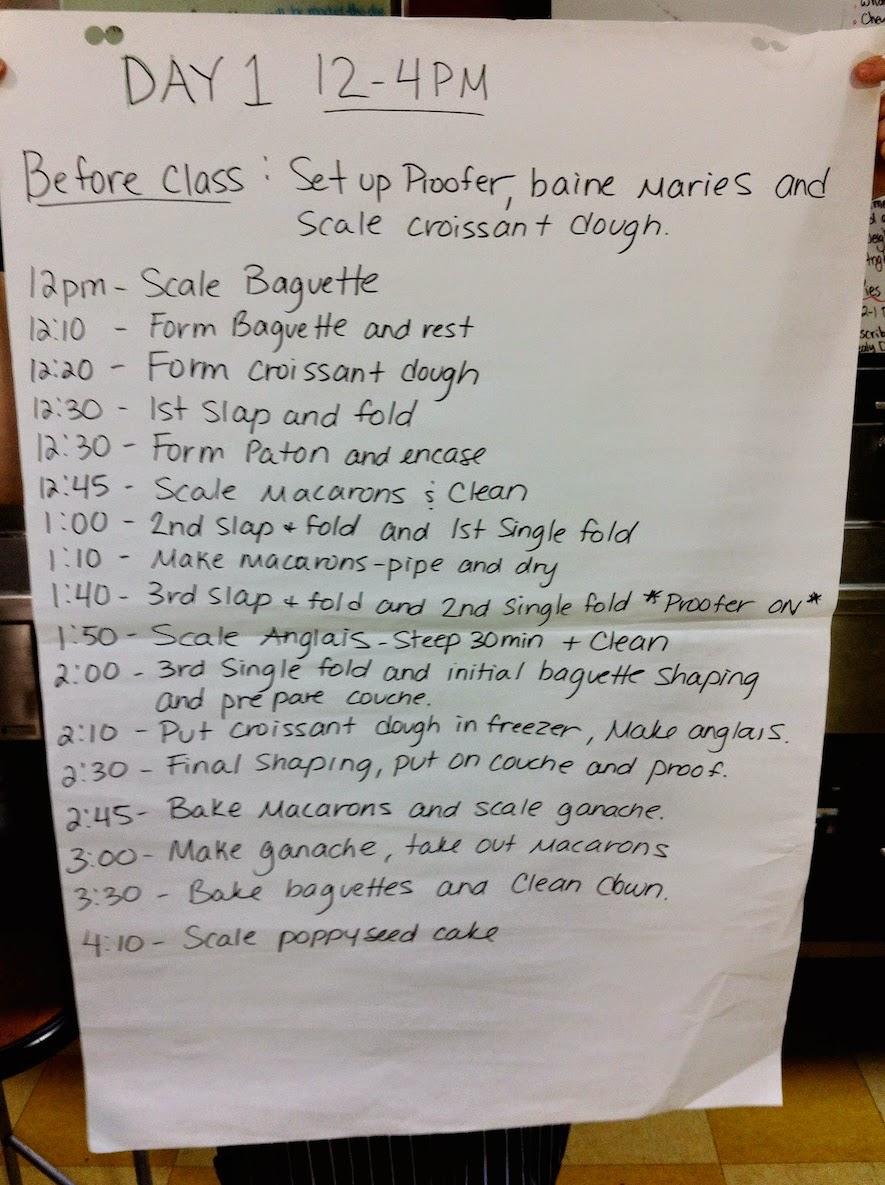 DAY 1 12-4PM
Before Class: Set up Proofer, baine Maries and
Scale croissant dough.
12pm - Scale Baguette
12:10 - Form Baguette and rest
12:20 - Form croissant dough
12:30 - 1st Slap and fold
12:30 - Form Paton and encase
12:45 - Scale Macarons & Clean
1:00 - 2nd Slap + fold and 1st Single fold
1:10 - Make macarons-pipe and dry
1:40 - 3rd Slap + fold and 2nd Single fold *Proofer on*
1:50 - Scale Anglais - Steep 30min + Clean
2:00 - 3rd Single fold and initial baguette Shaping
and prépare couche.
2:10 - Put croissant dough in freezer, Make anglais.
2:30 - Final Shaping, put on couche and proof.
2:45 - Bake Macarons and scale ganache.
3:00 - Make ganache, take out Macarons
3:30 - Bake baguettes and Clean down.
4:10 - Scale poppyseed cake